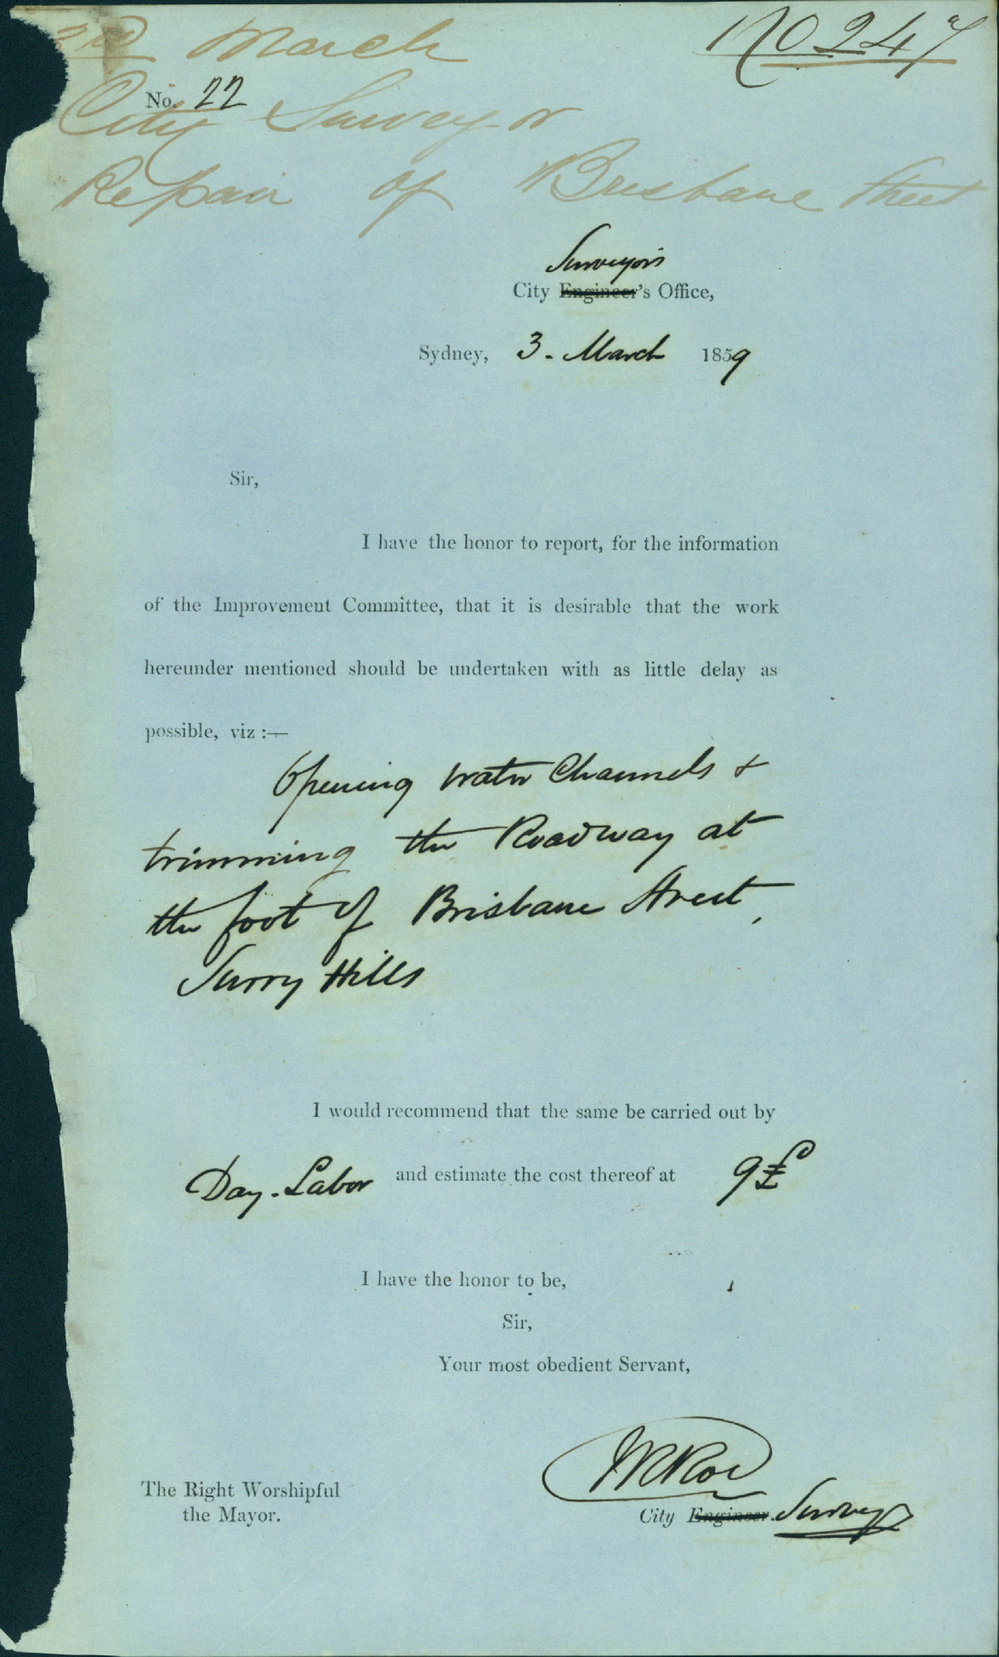 3rd March No 247
No. 22
City Surveyor
Repair of Brisbane Street
Surveyor's
City Engineer's Office,
Sydney, 3. March 1859
Sir,
I have the honor to report, for the information
of the Improvement Committee, that it is desirable that the work
hereunder mentioned should be undertaken with as little delay as
possible, viz :—
Opening Water Channels &
trimming the Roadway at
the foot of Brisbane Street,
Surry Hills
I would recommend that the same be carried out by
Day-Labor and estimate the cost thereof at 9£
I have the honor to be,
Sir,
Your most obedient Servant,
The Right Worshipful
the Mayor.
City Engineer. Surveyor